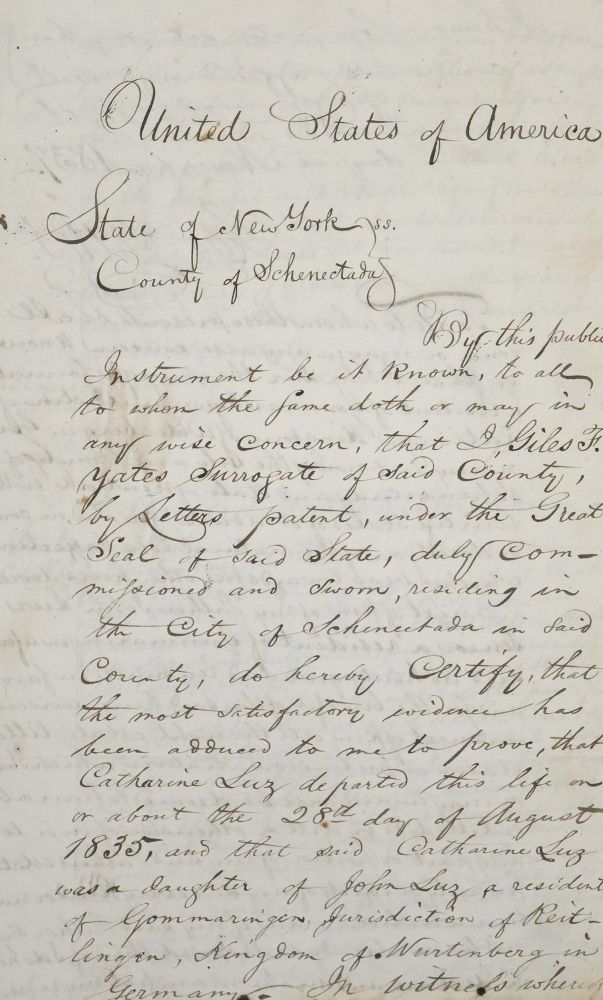 United States of America
State of New York } ss.
County of Schenectada }
By this public
Instrument be it Known, to all
to whom the same doth or may in
any wise Concern, that I, Giles F.
Yates Surrogate of Said County,
by Letters patent, under the Great
Seal of said State, duly Com–
missioned and Sworn, residing in
the City of Schenectada in Said
County, do hereby Certify, that
the most satisfactory evidence has
been adduced to me to prove, that
Catharine Luz departed this life on
or about the 28th day of August
1835, and that said Catharine Luz
was a daughter of John Luz, a resident
of Gommaringen Jurisdiction of Reit–
lingen, Kingdom of Wurtenberg in
Germany. – In witness whereof